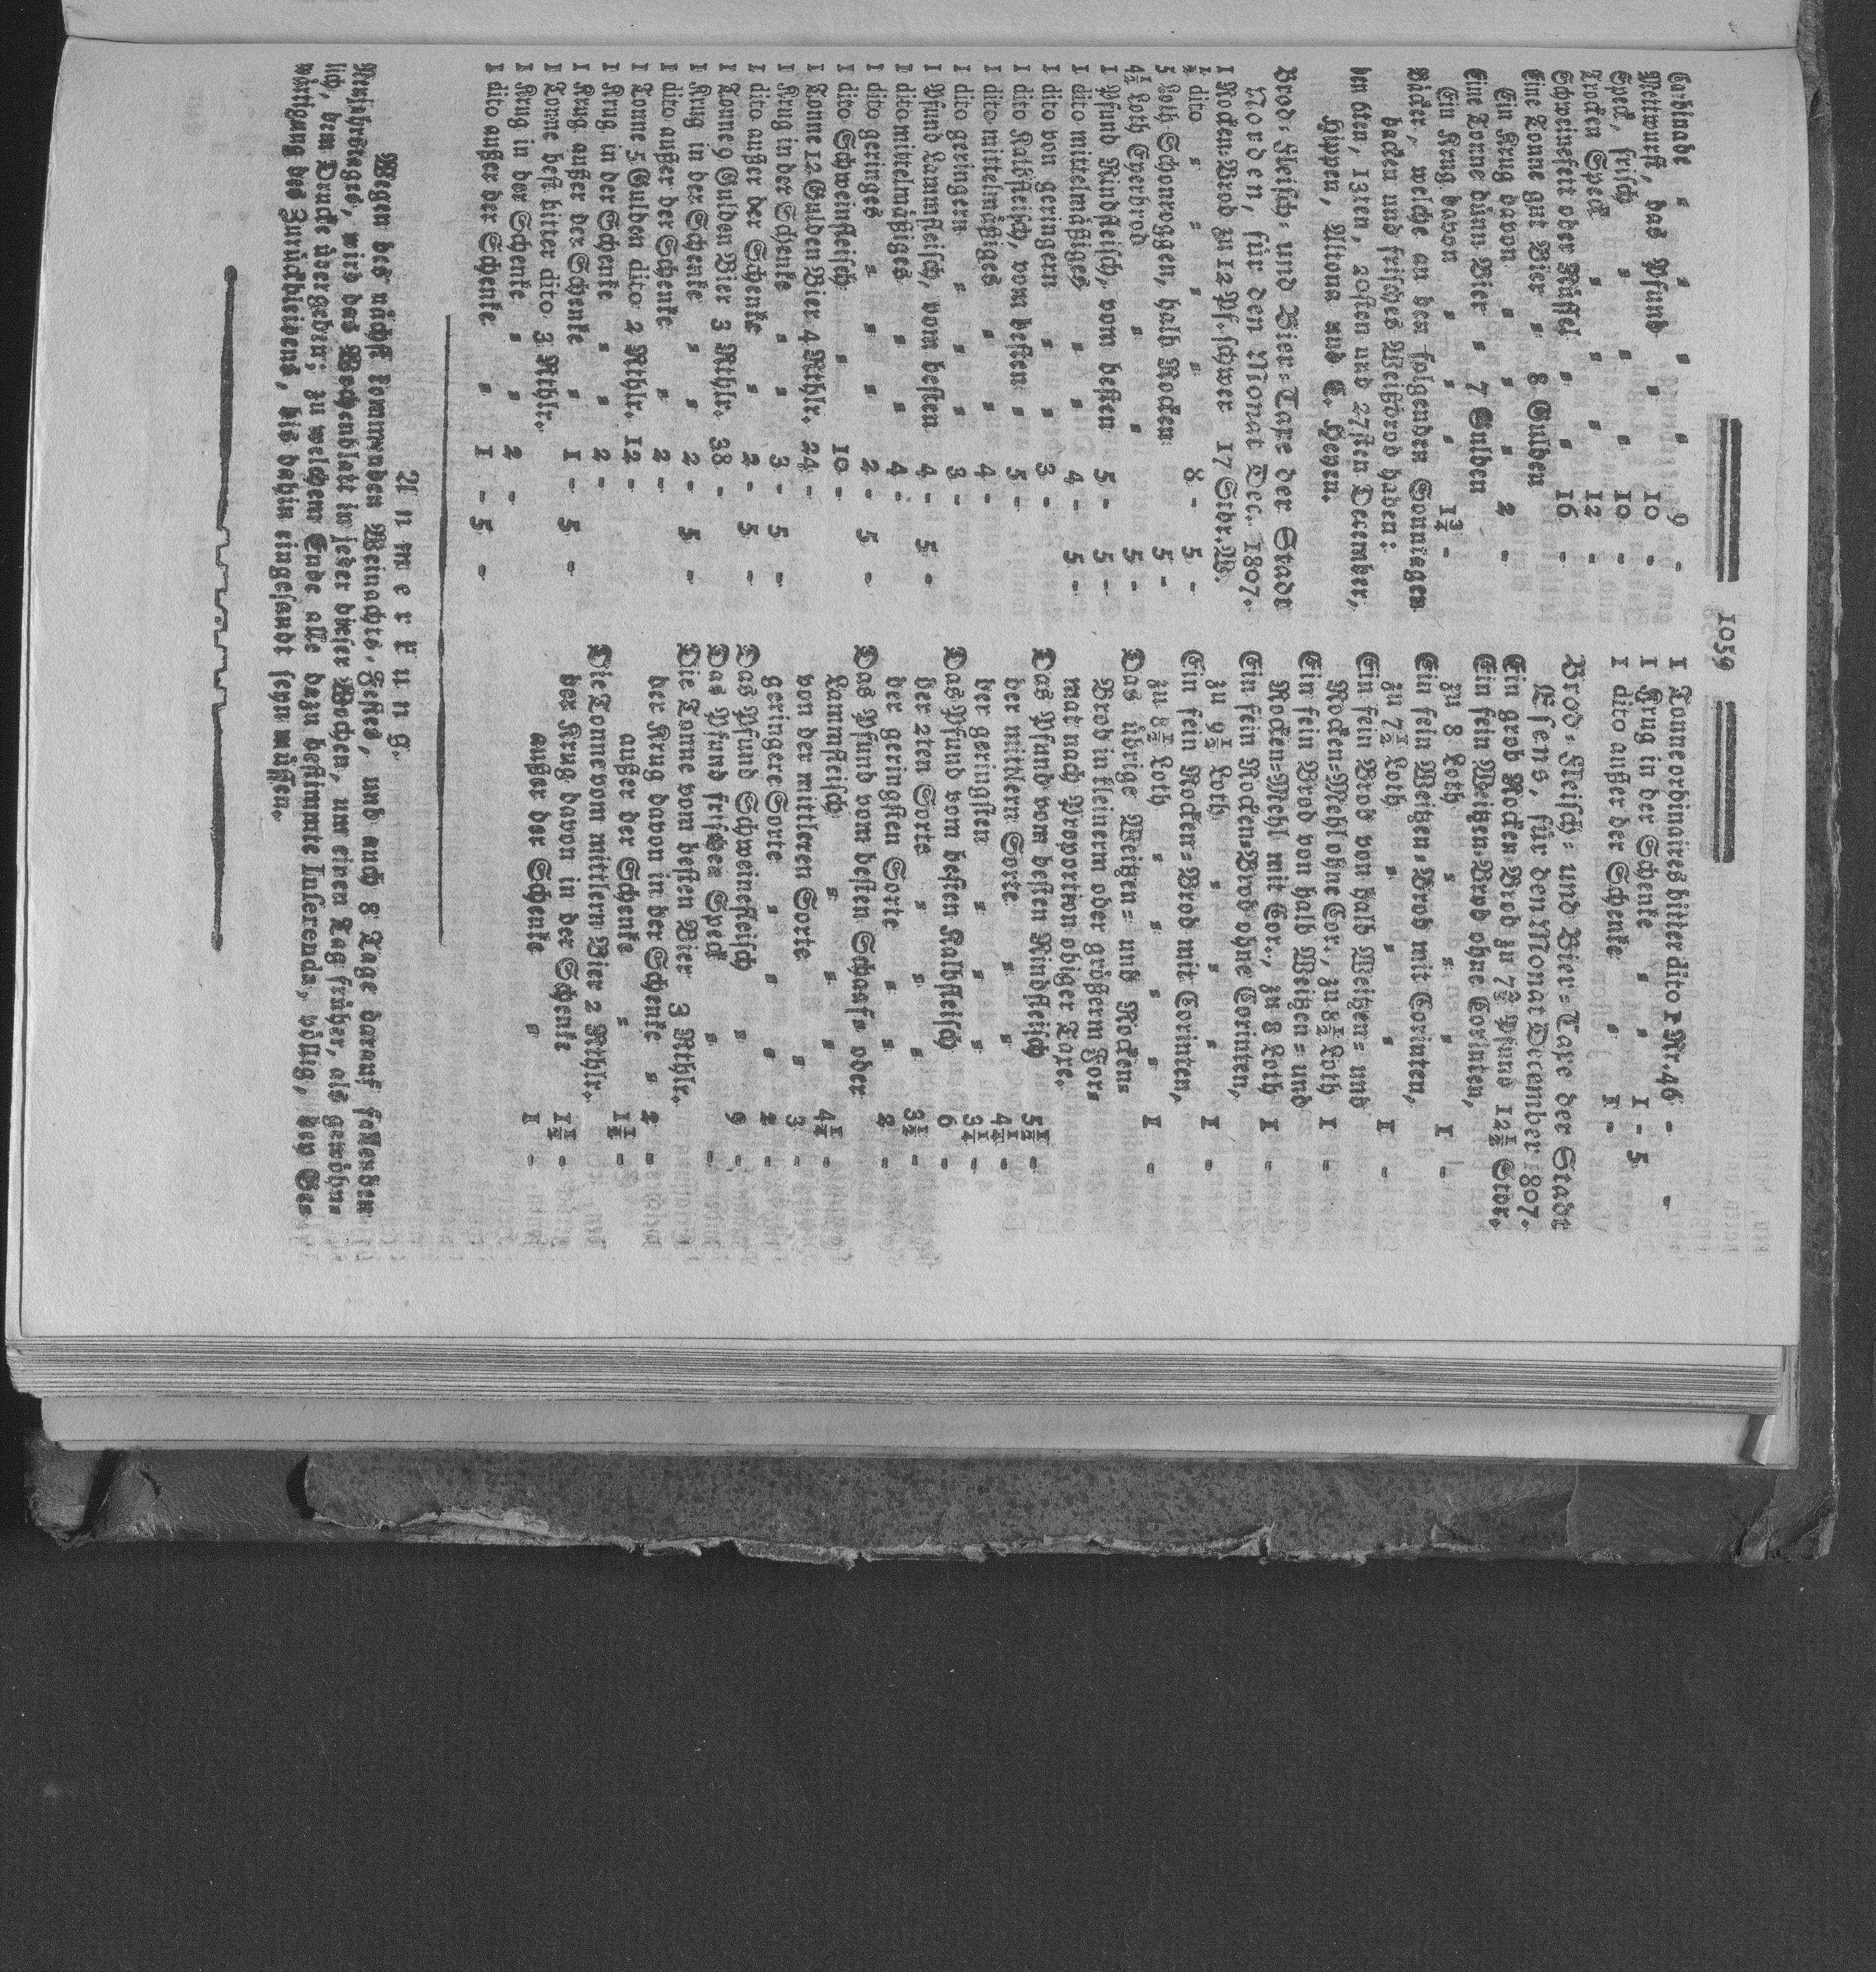 1059
Carbinade = = = 9 -
Mettwurst, das Pfund = 10 -
Speck, frisch = = = 10 -
Trocken Speck = = = 12 -
Schweinefett oder Rüssel = = 16 -
Eine Tonne gut Bier = 8 Gulden
Ein Krug davon = = = 2 -
Eine Tonne dünn Bier = 7 Gulden
Ein Krug davon = = = 1¾ -
Bäcker, welche an den folgenden Sonntagen
backen und frisches Weißbrod haben:
den 6ten, 13ten, 20sten und 27sten December,
Hippen, Altona und E. Heyen.
Brod- Fleisch- und Bier-Taxe der Stadt
Norden, für den Monat Dec. 1807.
1 Rocken-Brod zu 12 Pf. schwer 17 Stbr. W.
½ dito = = = = 8 - 5 -
5 Loth Schonroggen, halb Rocken 5 -
4½ Loth Eyerbrod = = 5 -
1 Pfund Rindfleisch, vom besten 5 - 5 -
1 dito mittelmäßiges = = 4 - 5 -
1 dito von geringern = = 3 -
1 dito Kalbfleisch, vom besten = 5 -
1 dito mittelmäßiges = = 4 -
1 dito geringern = = = 3 -
1 Pfund Lammfleisch, vom besten 4 - 5 -
1 dito mittelmäßiges = = 4 -
1 dito geringes = = = 2 - 5 -
1 dito Schweinfleisch = = 10 -
1 Tonne 12 Gulden Bier 4 Rthlr. 24 -
1 Krug in der Schenke = = 3 - 5 -
1 dito außer der Schenke = 2 - 5 -
1 Tonne 9 Gulden Bier 3 Rthlr. 38 -
1 Krug in der Schenke = = 2 - 5 -
1 dito außer der Schenke = 2 -
1 Tonne 5 Gulden dito 2 Rthlr. 12 -
1 Krug in der Schenke = = 2 -
1 Krug außer der Schenke = 1 - 5 -
1 Tonne best bitter dito 3 Rthlr.
1 Krug in der Schenke = = 2 -
1 dito außer der Schenke = 1 - 5 -
1 Tonne ordinaires bitter dito 1 Rr. 46 - -
1 Krug in der Schenke = = 1 - 5
1 dito außer der Schenke = 1 -
Brod- Fleisch- und Bier-Taxe der Stadt
Esens, für den Monat December 1807.
Ein grob Rocken-Brod zu 7¾ Pfund 12½ Stbr.
Ein fein Weitzen-Brod ohne Corinten,
zu 8 Loth = = = = 1 -
Ein fein Weitzen-Brod mit Corinten,
zu 7½ Loth = = = 1 -
Ein fein Brod von halb Weitzen- und
Rocken-Mehl ohne Cor., zu 8½ Loth 1 -
Ein fein Brod von halb Weitzen- und
Rocken-Mehl mit Cor., zu 8 Loth 1 -
Ein fein Rocken-Brod ohne Corinten,
zu 9½ Loth = = = 1 -
Ein fein Rocken-Brod mit Corinten,
zu 8½ Loth = = = = 1 -
Das übrige Weitzen- und Rocken-
Brod in kleinerm oder größerm For-
mat nach Proportion obiger Taxe.
Das Pfund vom besten Rindfleisch 5½ -
der mittlern Sorte = = 4¼ -
der geringsten = = = 3¼ -
Das Pfund vom besten Kalbfleisch 6 -
der 2ten Sorte = = = 3½ -
der geringsten Sorte = = 2 -
Das Pfund vom besten Schaaf- oder
Lammfleisch = = = 4¼ -
von der mittleren Sorte = 3 -
geringere Sorte = = = 2 -
Das Pfund Schweinefleisch = 9 -
Das Pfund frischen Speck = -
Die Tonne vom besten Bier 3 Rthlr.
der Krug davon in der Schenke = 2 -
außer der Schenke = = 1½ -
Die Tonne vom mittlern Bier 2 Rthlr.
der Krug davon in der Schenke 1½ -
außer der Schenke = = 1 -
Anmerkung.
Wegen des nächst kommenden Weinachts-Festes, und auch 8 Tage darauf fallenden
Neujahrstages, wird das Wochenblatt in jeder dieser Wochen, um einen Tag früher, als gewöhn-
lich, dem Drucke übergeben; zu welchem Ende alle dazu bestimmte Inserenda, völlig, bey Ge-
wärtigung des Zurückbleibens, bis dahin eingesandt seyn müssen.